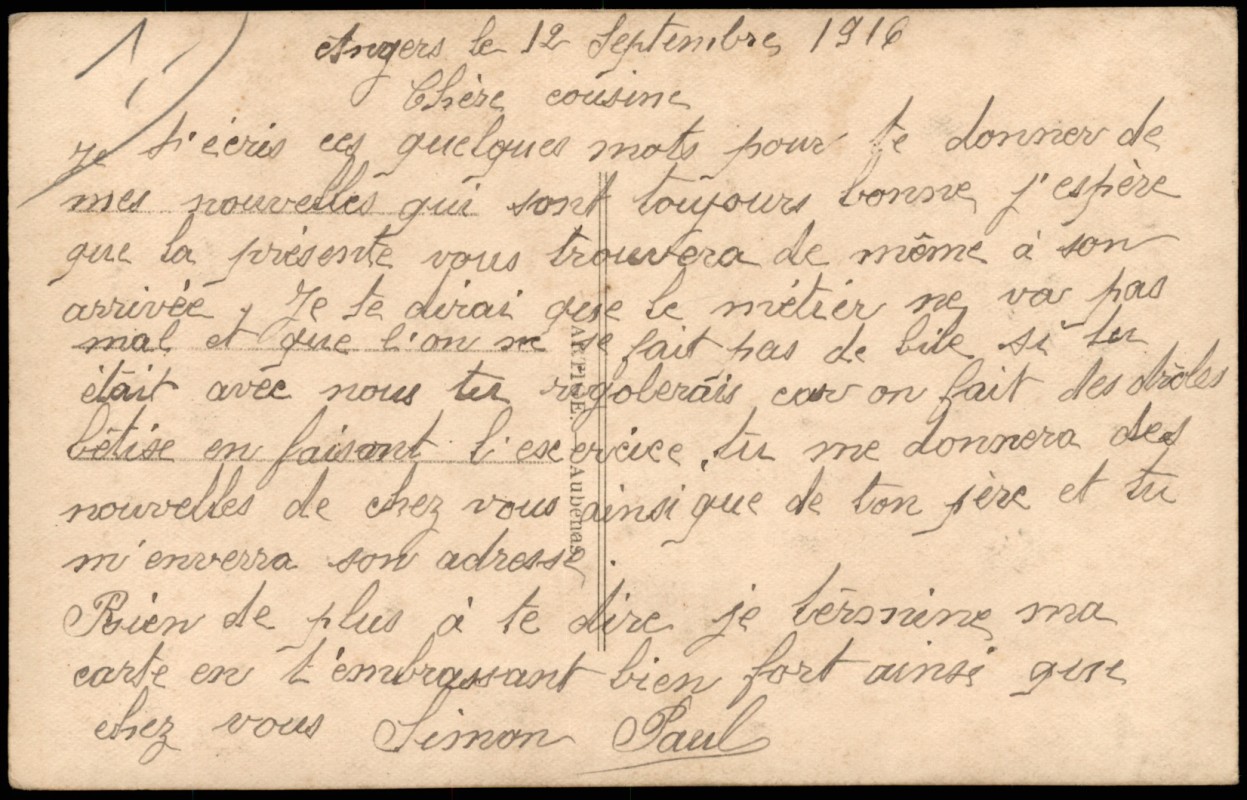 Angers le 12 Septembre 1916
Chère cousine
Je t'écris ces quelques mots pour te donner de
mes nouvelles qui sont toujours bonne, j'espère
que la présente vous trouvera de même à son
arrivée, Je te dirai que le métier ne va pas
mal et que l'on ne se fait pas de bile si tu
était avec nous tu rigolerais car on fait des drôles
bêtise en faisant l'exercice, tu me donnera des
nouvelles de chez vous ainsi que de ton père et tu
m'enverra son adresse.
Rien de plus à te dire je termine ma
carte en t'embrassant bien fort ainsi que
chez vous Simon Paul
Aubenas